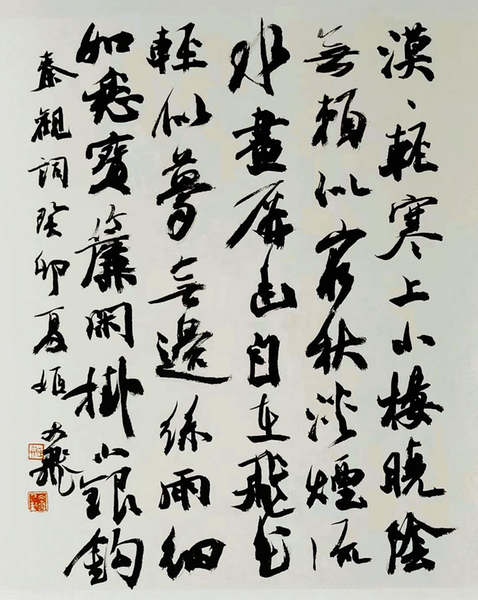 漠、輕寒上小樓曉陰
無賴似窮秋淡煙流
水畫屏幽自在飛花
輕似夢無邊絲雨細
如愁寶簾閑掛小銀鉤
秦觀詞癸卯夏